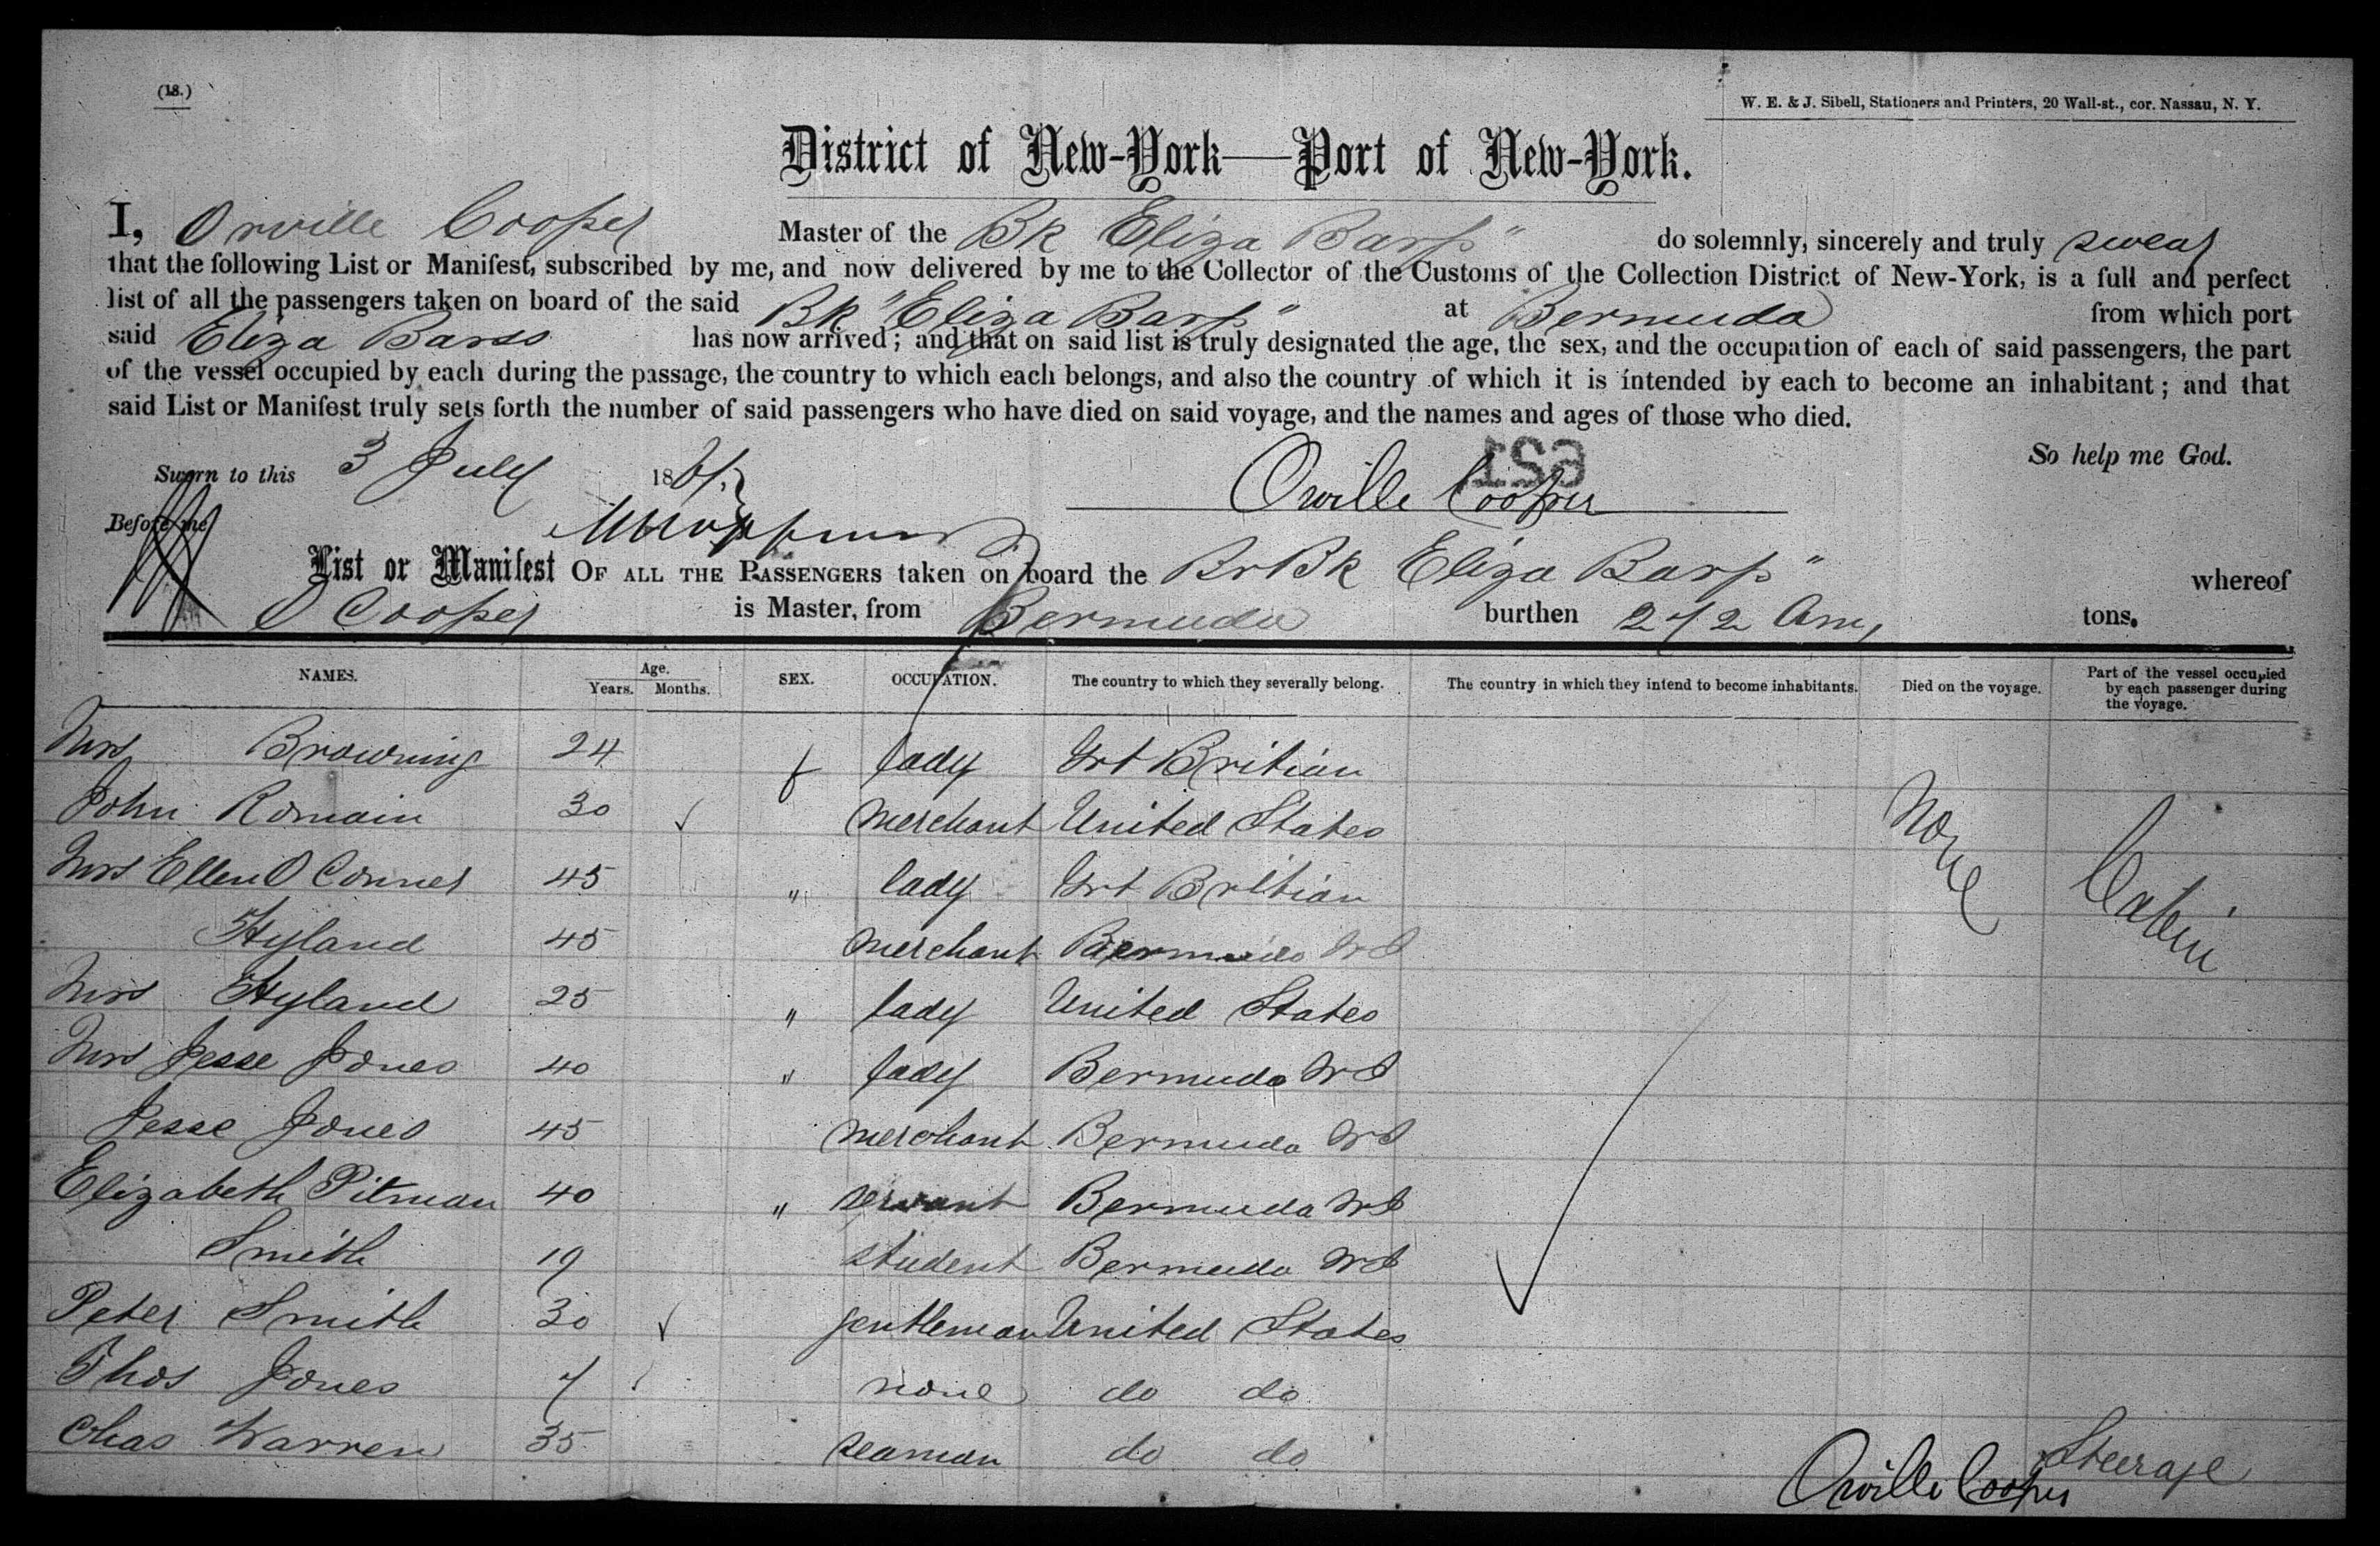 (18.)
W. E. & J. Sibell, Stationers and Printers, 20 Wall-st., cor. Nassau, N. Y.
District of New-York—Port of New-York.
I, Orville Cooper Master of the Bk Eliza Barss" do solemnly, sincerely and truly swear
that the following List or Manifest, subscribed by me, and now delivered by me to the Collector of the Customs of the Collection District of New-York, is a full and perfect
list of all the passengers taken on board of the said Bk "Eliza Barss" at Bermuda from which port
said Eliza Barss has now arrived; and that on said list is truly designated the age, the sex, and the occupation of each of said passengers, the part
of the vessel occupied by each during the passage, the country to which each belongs, and also the country of which it is intended by each to become an inhabitant; and that
said List or Manifest truly sets forth the number of said passengers who have died on said voyage, and the names and ages of those who died.
So help me God.
Sworn to this 3 July 186 Orville Cooper
621
Before me
List or Manifest OF ALL THE PASSENGERS taken on board the Br Bk Eliza Barss" whereof
O Cooper is Master, from Bermuda burthen 242 tons.
NAMES. Age. Years. Months. SEX. OCCUPATION. The country to which they severally belong. The country in which they intend to become inhabitants. Died on the voyage. Part of the vessel occupied by each passenger during the voyage.
Mrs Browning 24 f lady Grt Britian
John Romain 30 merchant United States None Cabin
Mrs Ellen O Conner 45 " lady Grt Britian
Hyland 45 merchant Bermuda W I
Mrs Hyland 25 " lady United States
Mrs Jesse Jones 40 " lady Bermuda W I
Jesse Jones 45 merchant Bermuda W I
Elizabeth Pitman 40 " servant Bermuda W I
Smith 19 student Bermuda W I
Peter Smith 30 gentleman United States
Thos Jones 7 none do do
Chas Warren 35 seaman do do Steerage
Orville Cooper